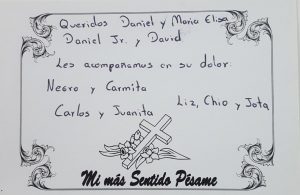 Queridos Daniel y Maria Elisa
Daniel Jr. y David
Les acompañamos en su dolor
Negro y Carmita
Carlos y Juanita
Liz, Chio y Jota
Mi más Sentido Pésame